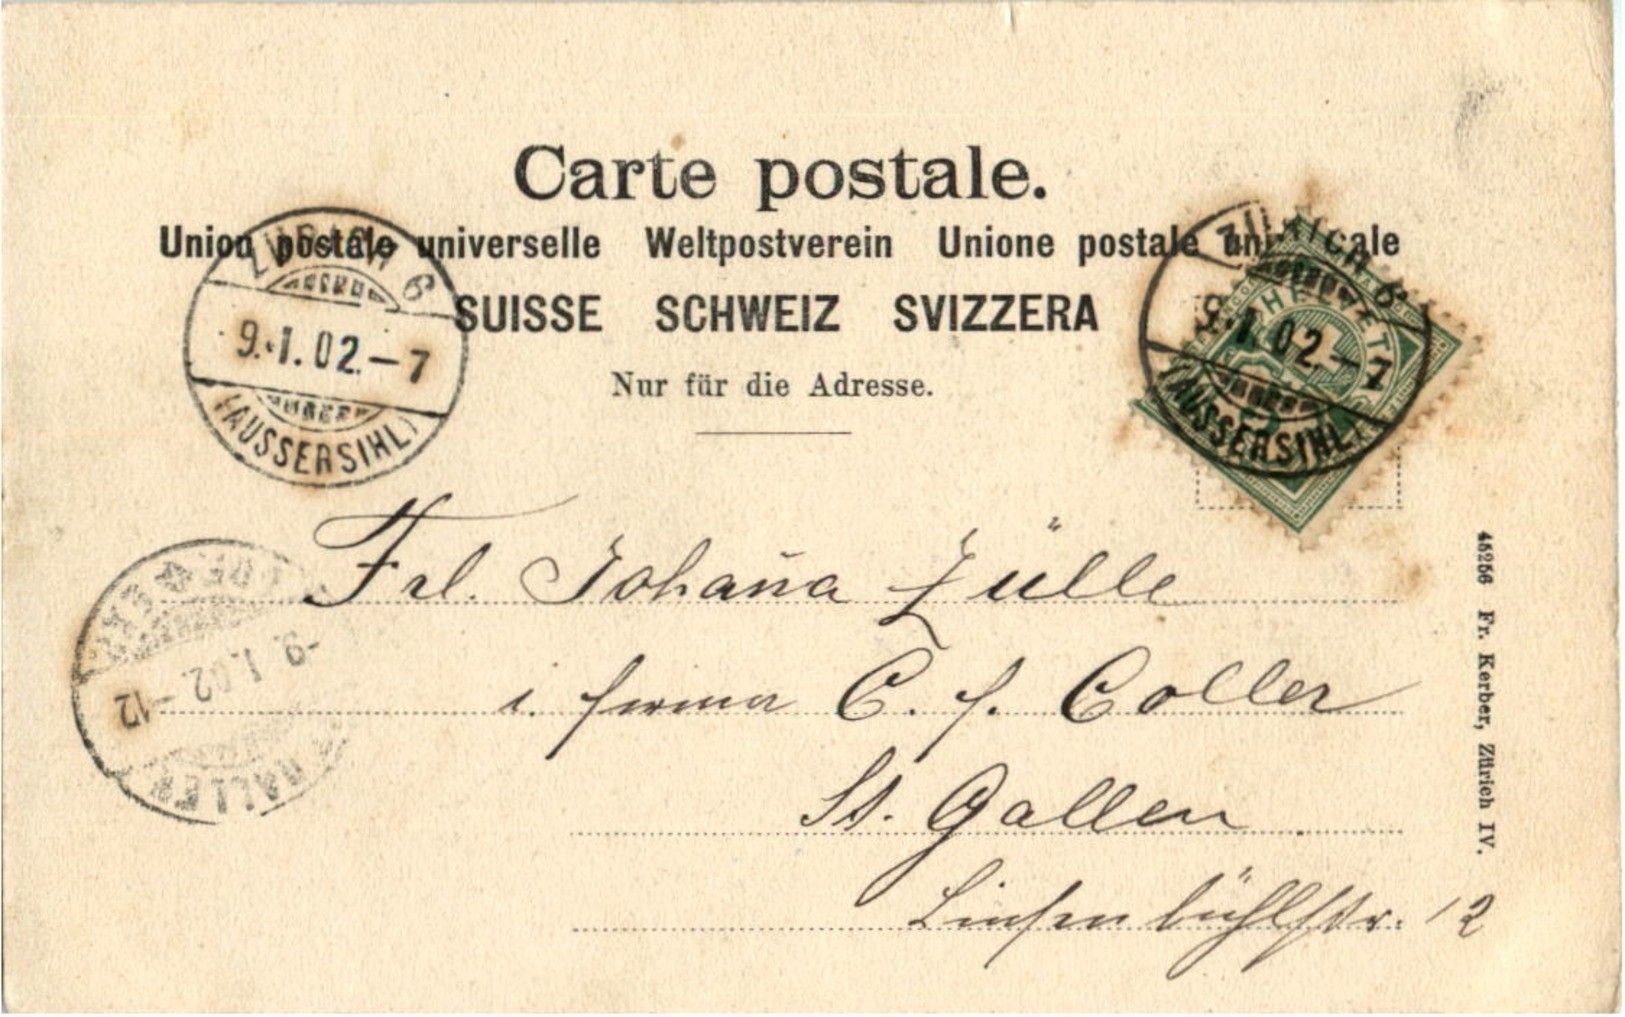 Carte postale.
Union postale universelle Weltpostverein Unione postale universale
SUISSE SCHWEIZ SVIZZERA
Nur für die Adresse.
ZÜRICH 6
9.·1.02.–7
(AUSSERSIHL)
ZÜRICH 6
9.·1.02.–7
(AUSSERSIHL)
HELVETIA
5
Frl. Johan̄a Zülle
i. firma C. f. Coller
St. Gallen
Linsenbühlstr. 12
-9.1.02.-12
45256 Fr. Kerber, Zürich IV.